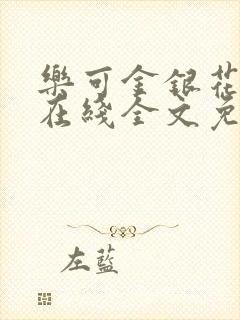 樂可金銀花
在綫全文免
左藍